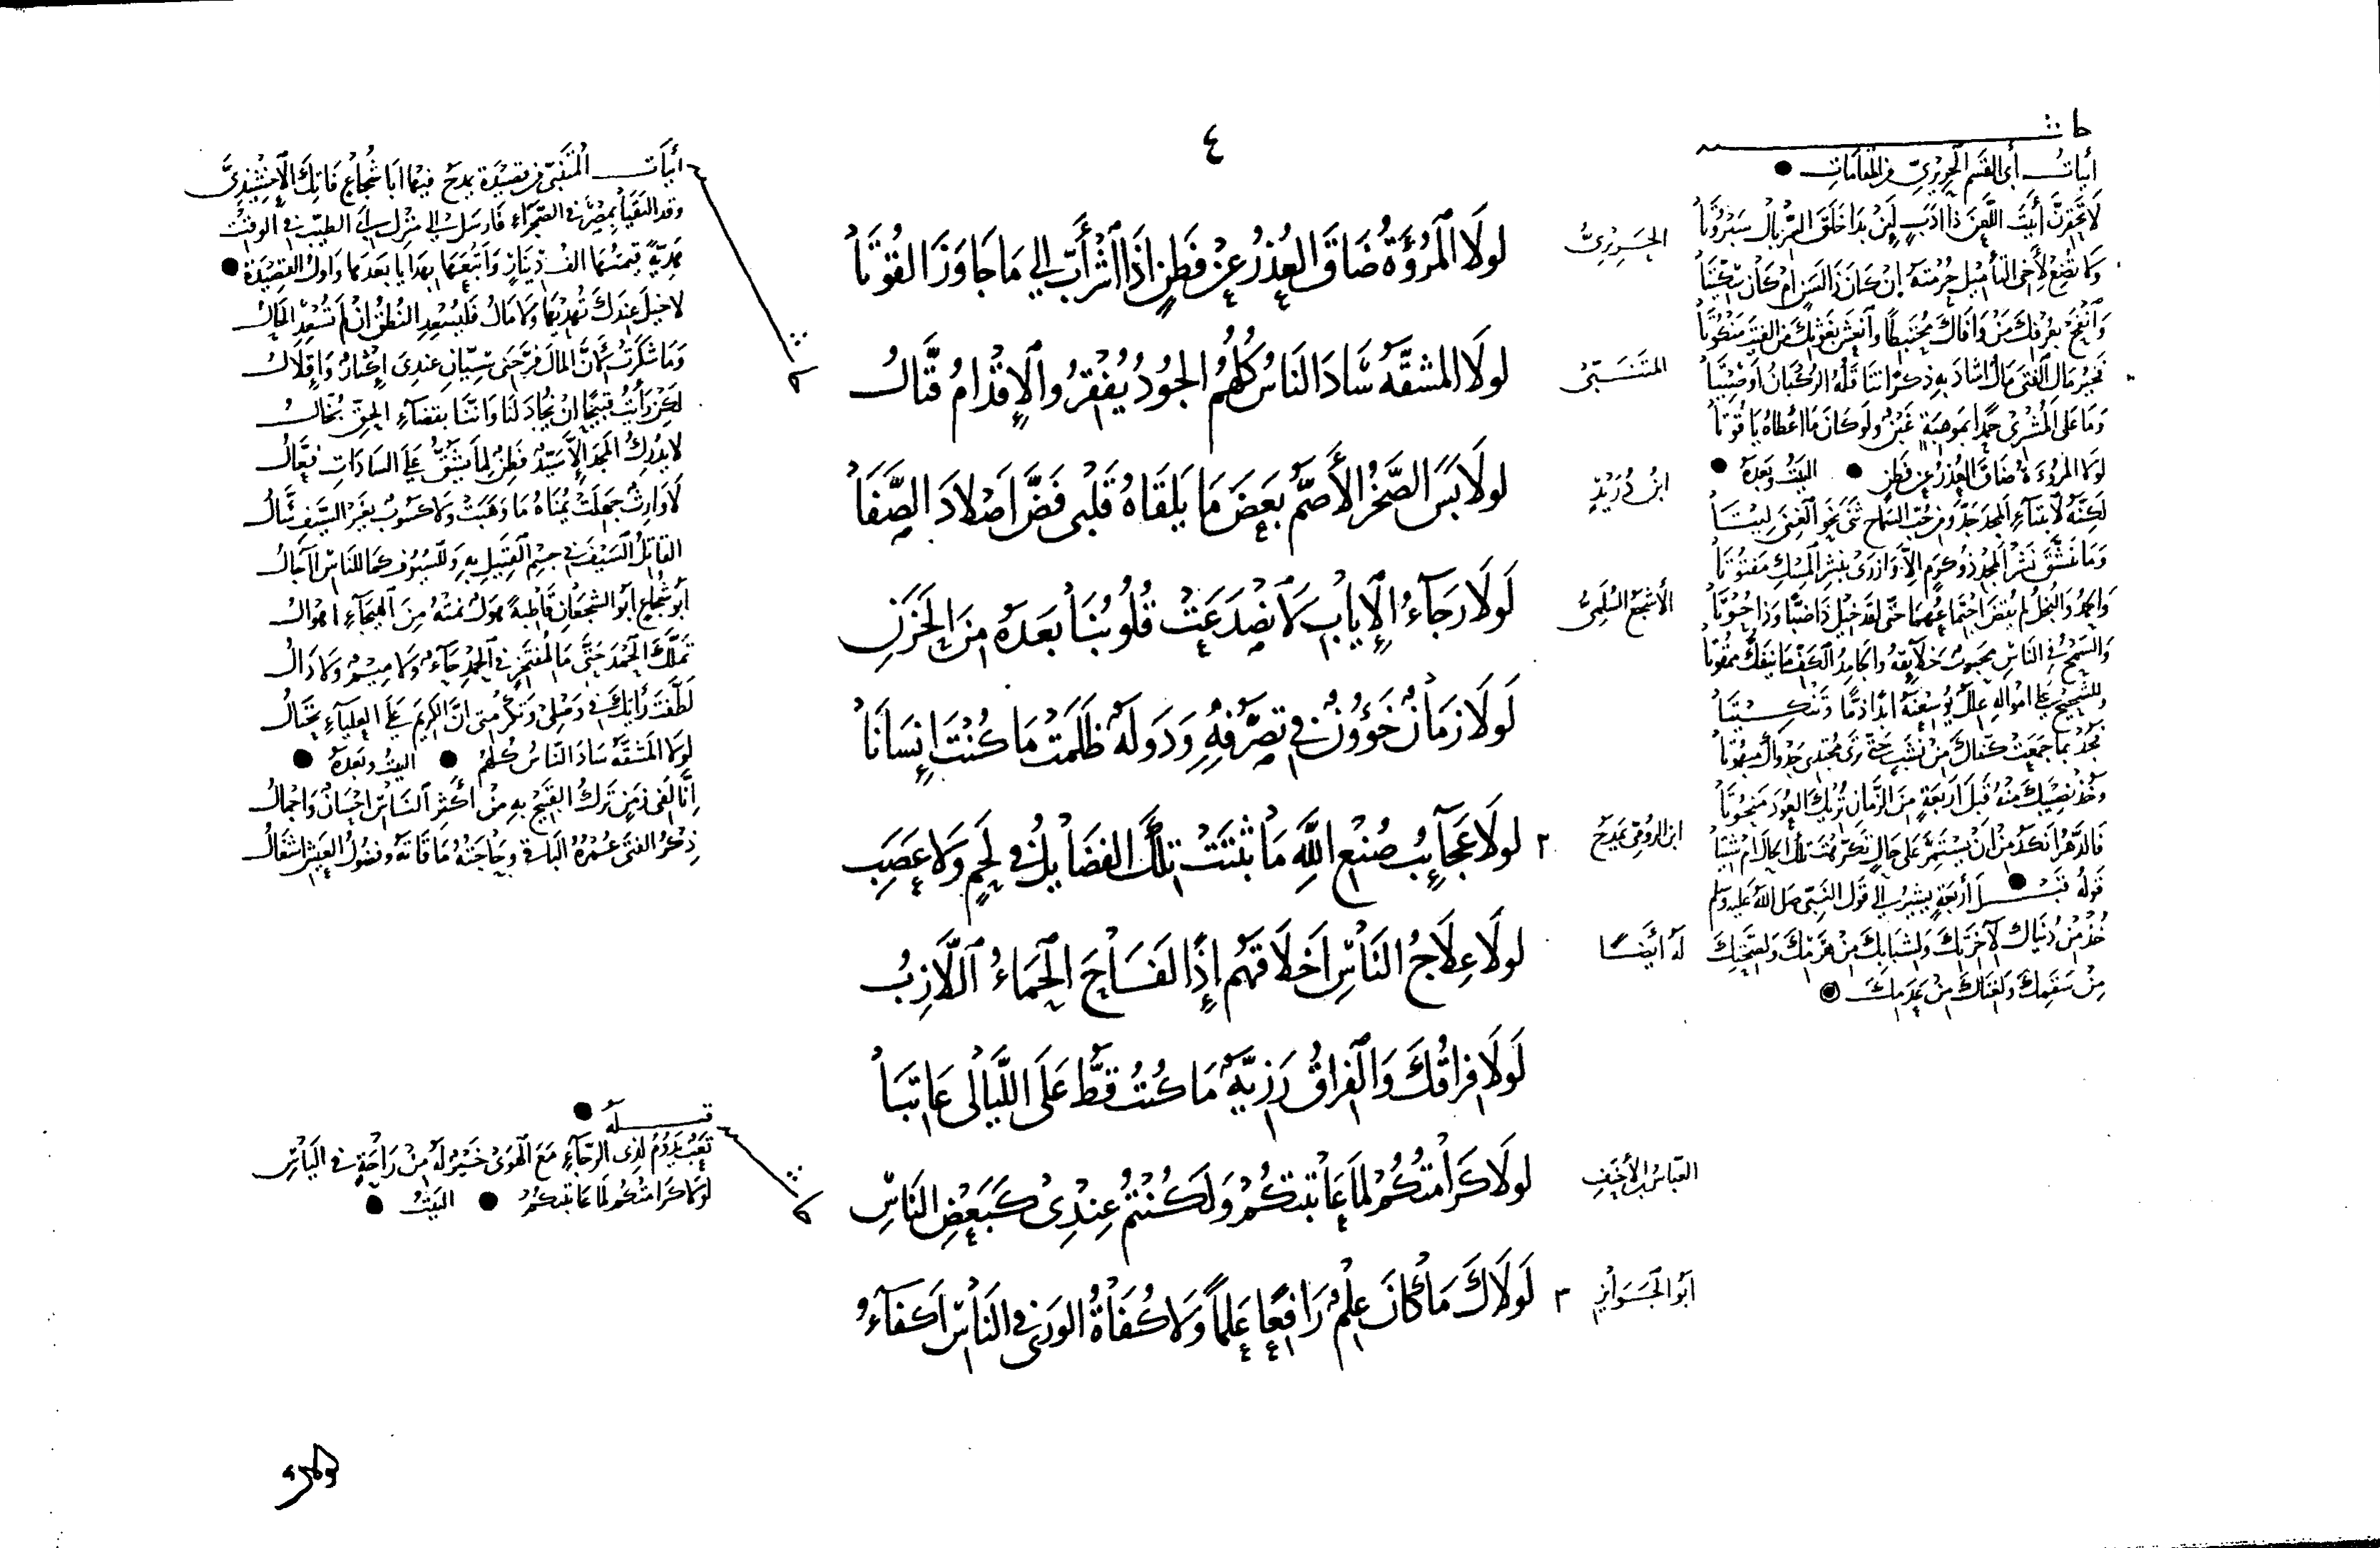 ٤
لولا المروءة ضاق العذر عن فطن إذا اشرأب إلى ما جاوز القوتا
لولا المشقة ساد الناس كلهم الجود يفقر والإقدام قتال
لولابس الصخر الأصم بعض ما يلقاه قلبي فض اصلاد الصفا
لولا رجاء الإياب لانصدعت قلوبنا بعده من الحزن
لولا زمان خؤون في تصرفه ودولة ظلمت ما كنت إنسانا
٢ لولا عجائب صنع الله ما ثبتت تلك الفضائل في لحم ولا عصب
لولا علاج الناس اخلاقهم إذا لفاح الحماء اللازب
لولا فراقك والفراق رزية ما كنت قط على الليالي عاتبا
لولا كرامتكم لما عاتبتكم ولكنتم عندي كبعض الناس
٣ لولاك ما كان علم رافعا علما ولا كفاة الورى في الناس اكفاء
الحريري
المتنبي
ابن دريد
الأشجع السلمي
ابن الرومي يمدح
له أيضا
العباس بن الأحنف
أبو الجوائز
أبيات أبي القسم الحريري في المقامات
لا تحقرن أبيت اللعن ذا ادب لئن بدا خلق السربال سبروتا
ولا تضع لأخي التأميل حرمته إن كان ذا لسن ام كان سكيتا
وانفح بعرفك من وافاك مختبطا وانعش بغوثك من الفيت منكوتا
فخير مال الفتى مال اشاد به ذكرا تناقله الركبان او صيتا
وما على المشتري حمدا بموهبة غبن ولو كان ما اعطاه ياقوتا
لولا المروءة ضاق العذر عن فطن البيت وبعده
لكنه لابتناء المجد جد ومن حب السماح ثنى نحو الغنى ليتا
وما تنشق نشر المجد ذو كرم الا وازرى بنشر المسك مفتوتا
والحمد والبخل لم يقض اجتماعهما حتى لقد خيل ذا ضبا وذا حوتا
والسمح في الناس محبوب خلائقه والجامد الكف ما ينفك ممقوتا
وللشحيح على امواله علل يوسعنه ابدا ذما وتنكيتا
فجد بما جمعت كفاك من نشب حتى ترى مجتدي جدواك مبهوتا
وخذ نصيبك منه قبل اربعة من الزمان تريك العود منحوتا
فالدهر انكد من ان يستمر على حال تكرهت تلك الحال ام شيتا
قوله قبل أربعة يشير إلى قول النبي صلى الله عليه وسلم
خذ من دنياك لآخرتك ولشبابك من هرمك ولصحتك
من سقمك ولغناك من عدمك
أبيات المتنبي من قصيدة يمدح فيها ابا شجاع فاتك الإخشيذي
وقد التقيا بمصر في الصحراء فارسل إلى منزل ابي الطيب في الوقت
هدية قيمتها الف دينار واتبعها بهدايا بعدها واول القصيدة
لا خيل عندك تهديها ولا مال فليسعد النطق ان لم تسعد الحال
وما شكرت لأن المال فرحني سيان عندي إكثار وإقلال
لكن رأيت قبيحا ان يجاد لنا واننا بقضاء الحق بخال
لا يدرك المجد إلا سيد فطن لما يشق على السادات فعال
لا وارث جهلت يمناه ما وهبت ولا كسوب بغير السيف سئال
القاتل السيف في جسم القتيل به وللسيوف كما للناس آجال
أبو شجاع أبو الشجعان قاطبة هول نمته من الهيجاء اهوال
تملك الحمد حتى ما لمفتخر في الحمد حاء ولا ميم ولا دال
لطفت رأيك في وصلي وتكرمتي ان الكريم على العلياء يحتال
لولا المشقة ساد الناس كلهم البيت وبعده
إنا لفي زمن ترك القبيح به من أكثر الناس احسان واجمال
ذكر الفتى عمره الباقي وحاجته ما فاته وفضول العيش اشغال
قبله
تعب يدوم لذي الرجاء مع الهوى خير له من راحة في الياس
لولا كرامتكم لما عاتبتكم البيت